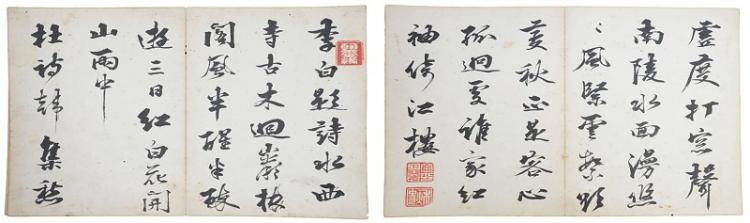 虛度打窓聲
南陵水面漫悠
〻風緊雲欲
變秋正是客心
孤迥處誰家紅
袖倚江樓
李白題詩水西
寺古木迴巖樓
閣風半醒半醉
遊三日紅白花開
山雨中
杜詩集